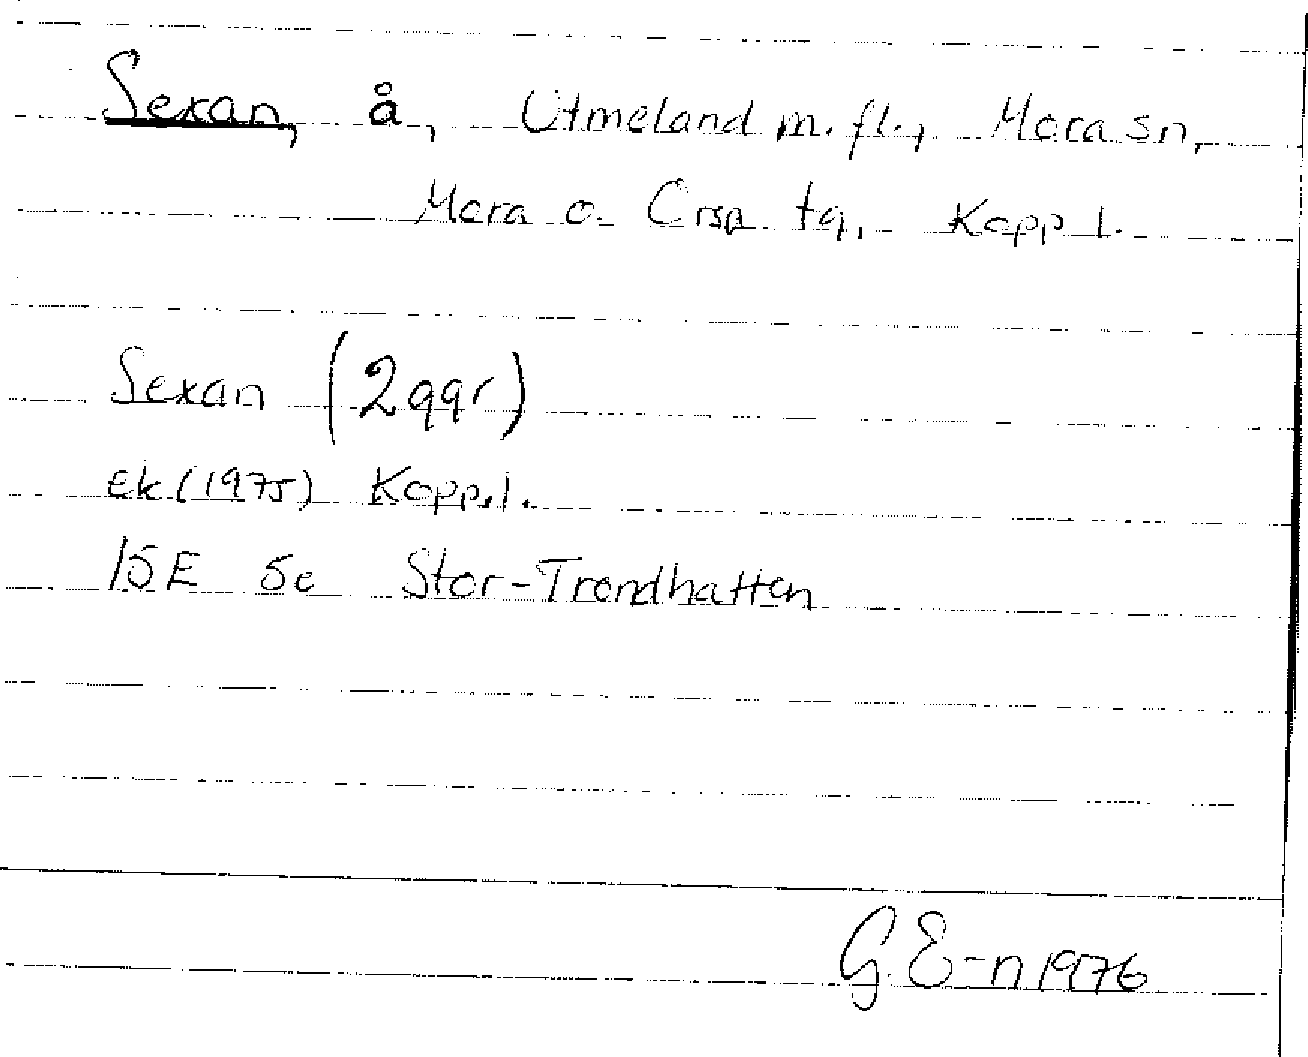 Sexan, å, Utmeland m. fl., Mora sn,
Mora o. Orsa tg, Kopp l.
Sexan (2ggr)
Ek (1975) Kopp.l.
15E 5e Stor-Trondhatten
G.E-n 1976